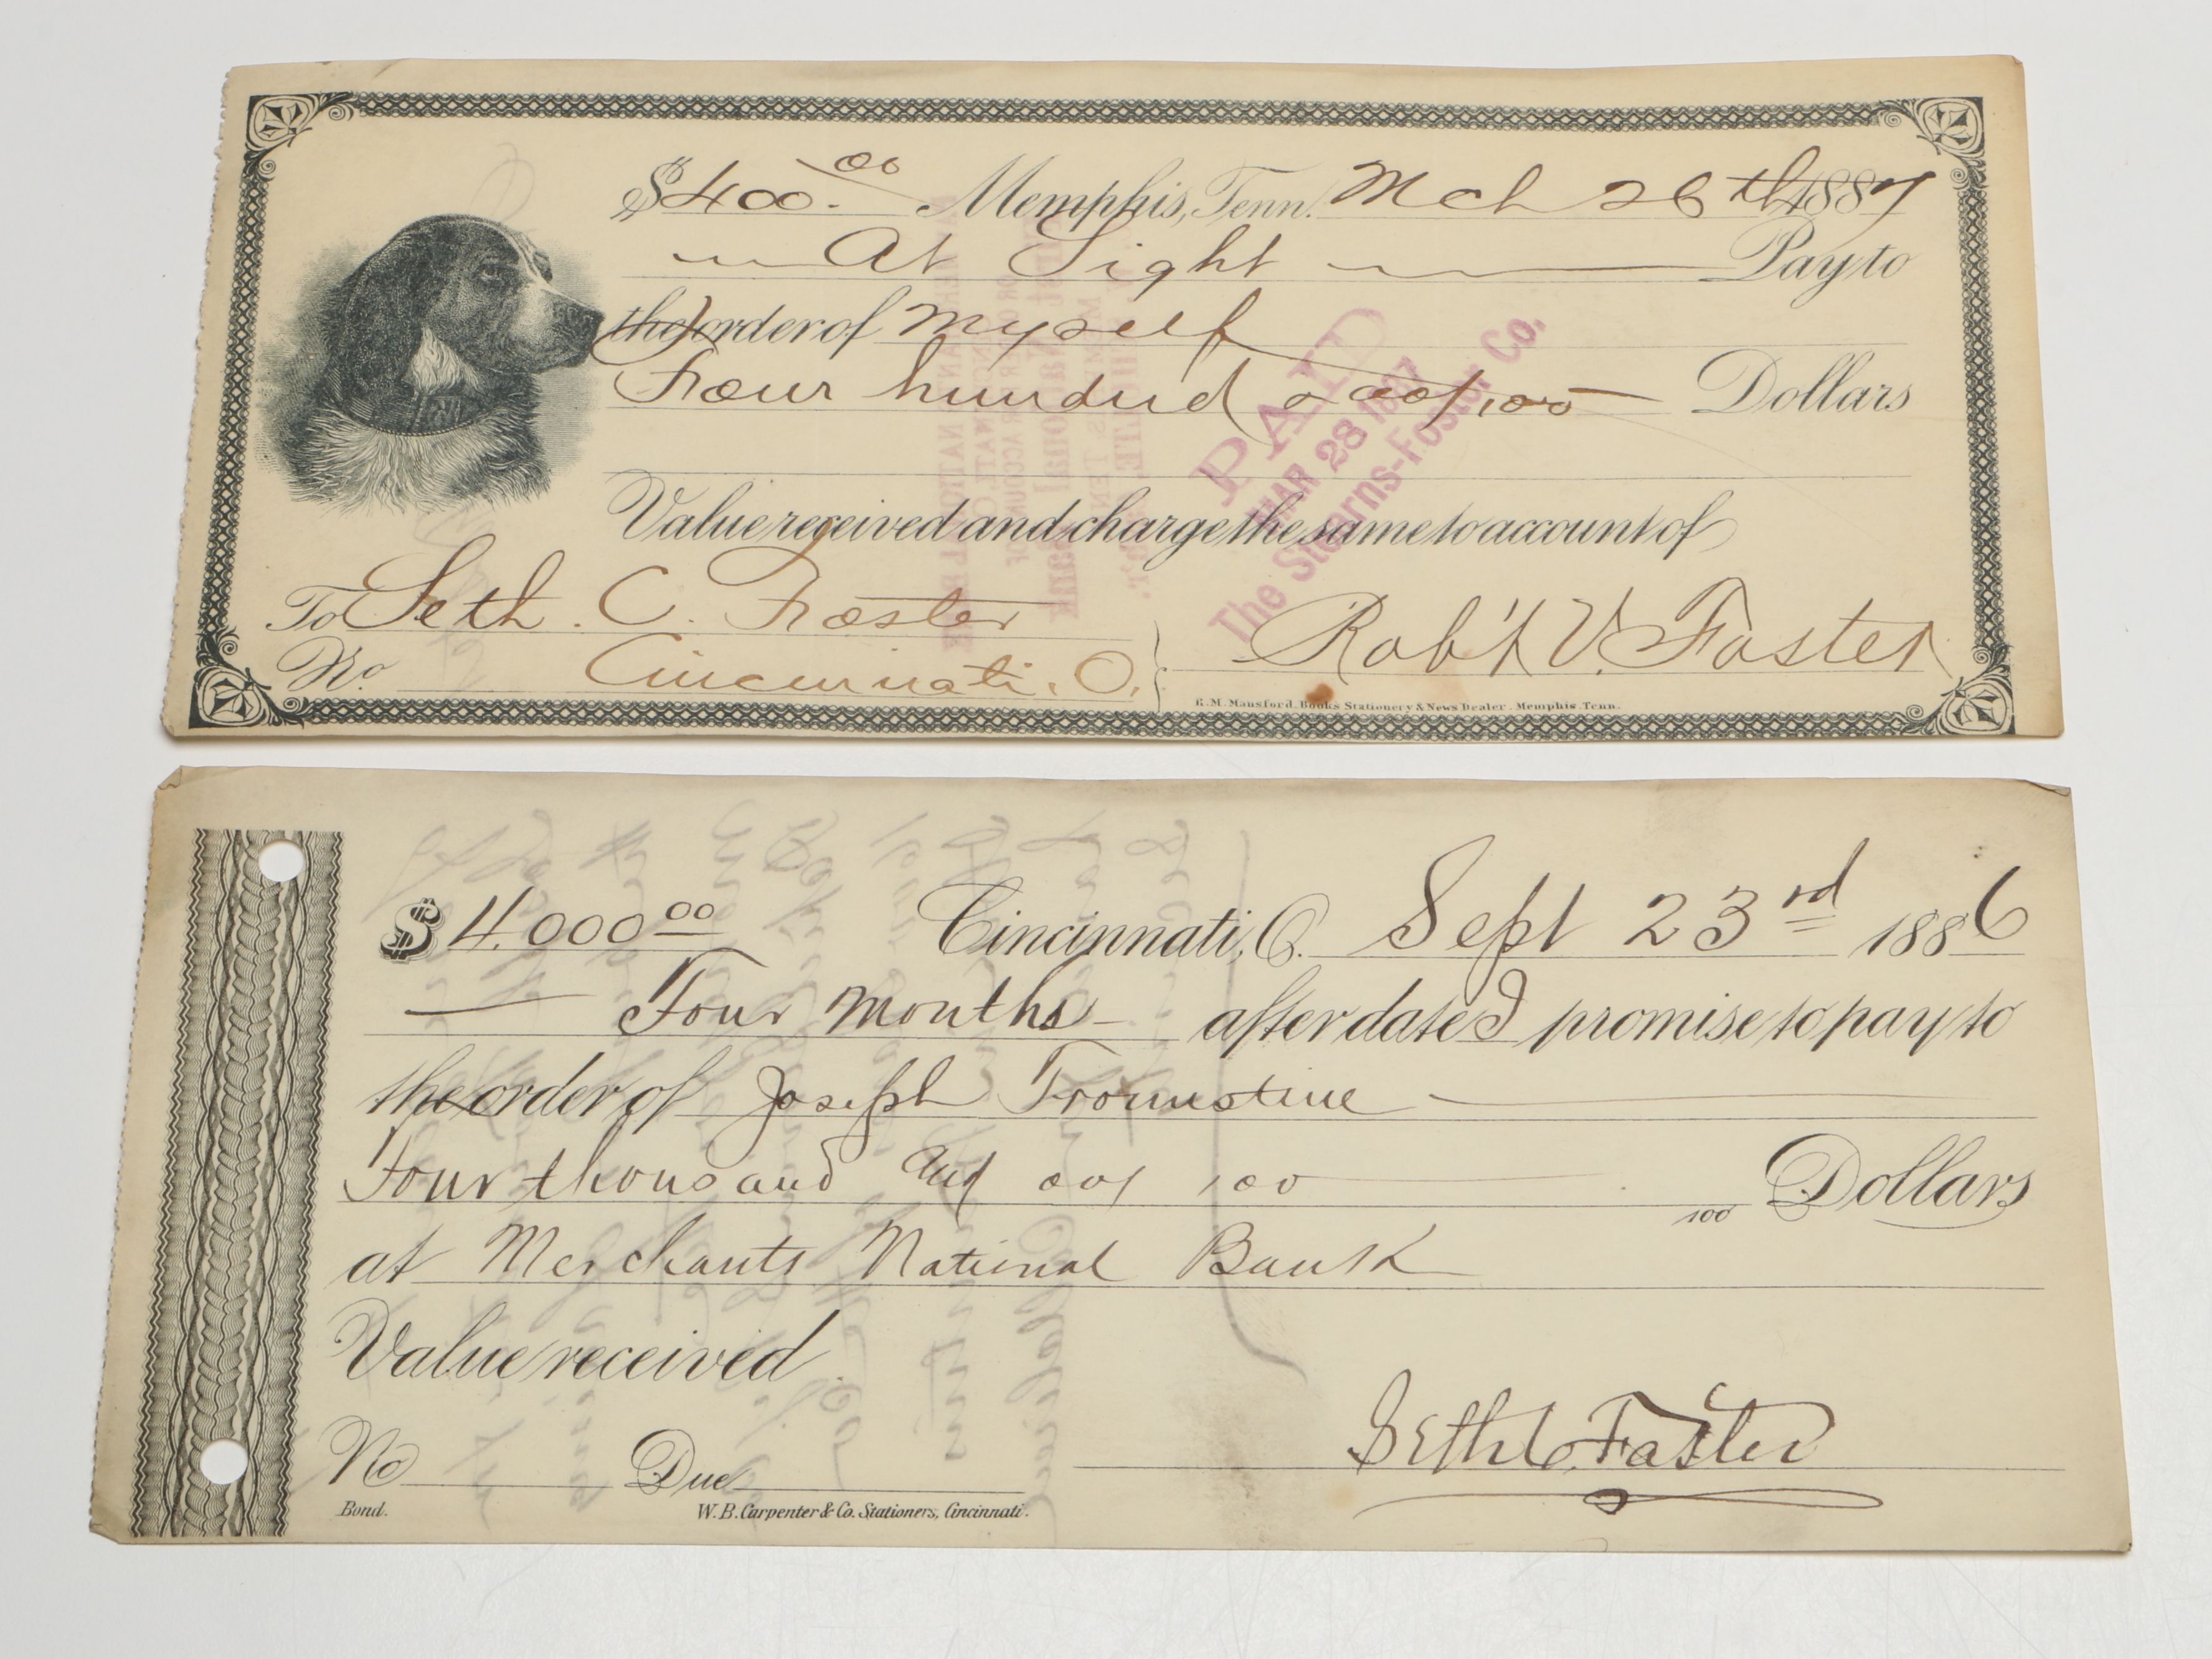 $400.00 Memphis, Tenn. Mch 26th 1887
At Sight Pay to
the order of Myself
Four hundred & 00/100 Dollars
Value received and charge the same to account of
To Seth. C. Foster
No. Cincinnati, O.
Rob't V. Foster
R.M. Mansford. Books Stationery & News Dealer. Memphis. Tenn.
PAID
MAR 28 1887
The Stearns-Foster Co.
$4.000 00 Cincinnati, O. Sept 23rd 1886
Four Months after date I promise to pay to
the order of Joseph Trounstine
Four thousand and 00/100 100 Dollars
at Merchants National Bank
Value received
Seth C. Foster
No Due
Bond. W. B. Carpenter & Co. Stationers, Cincinnati.